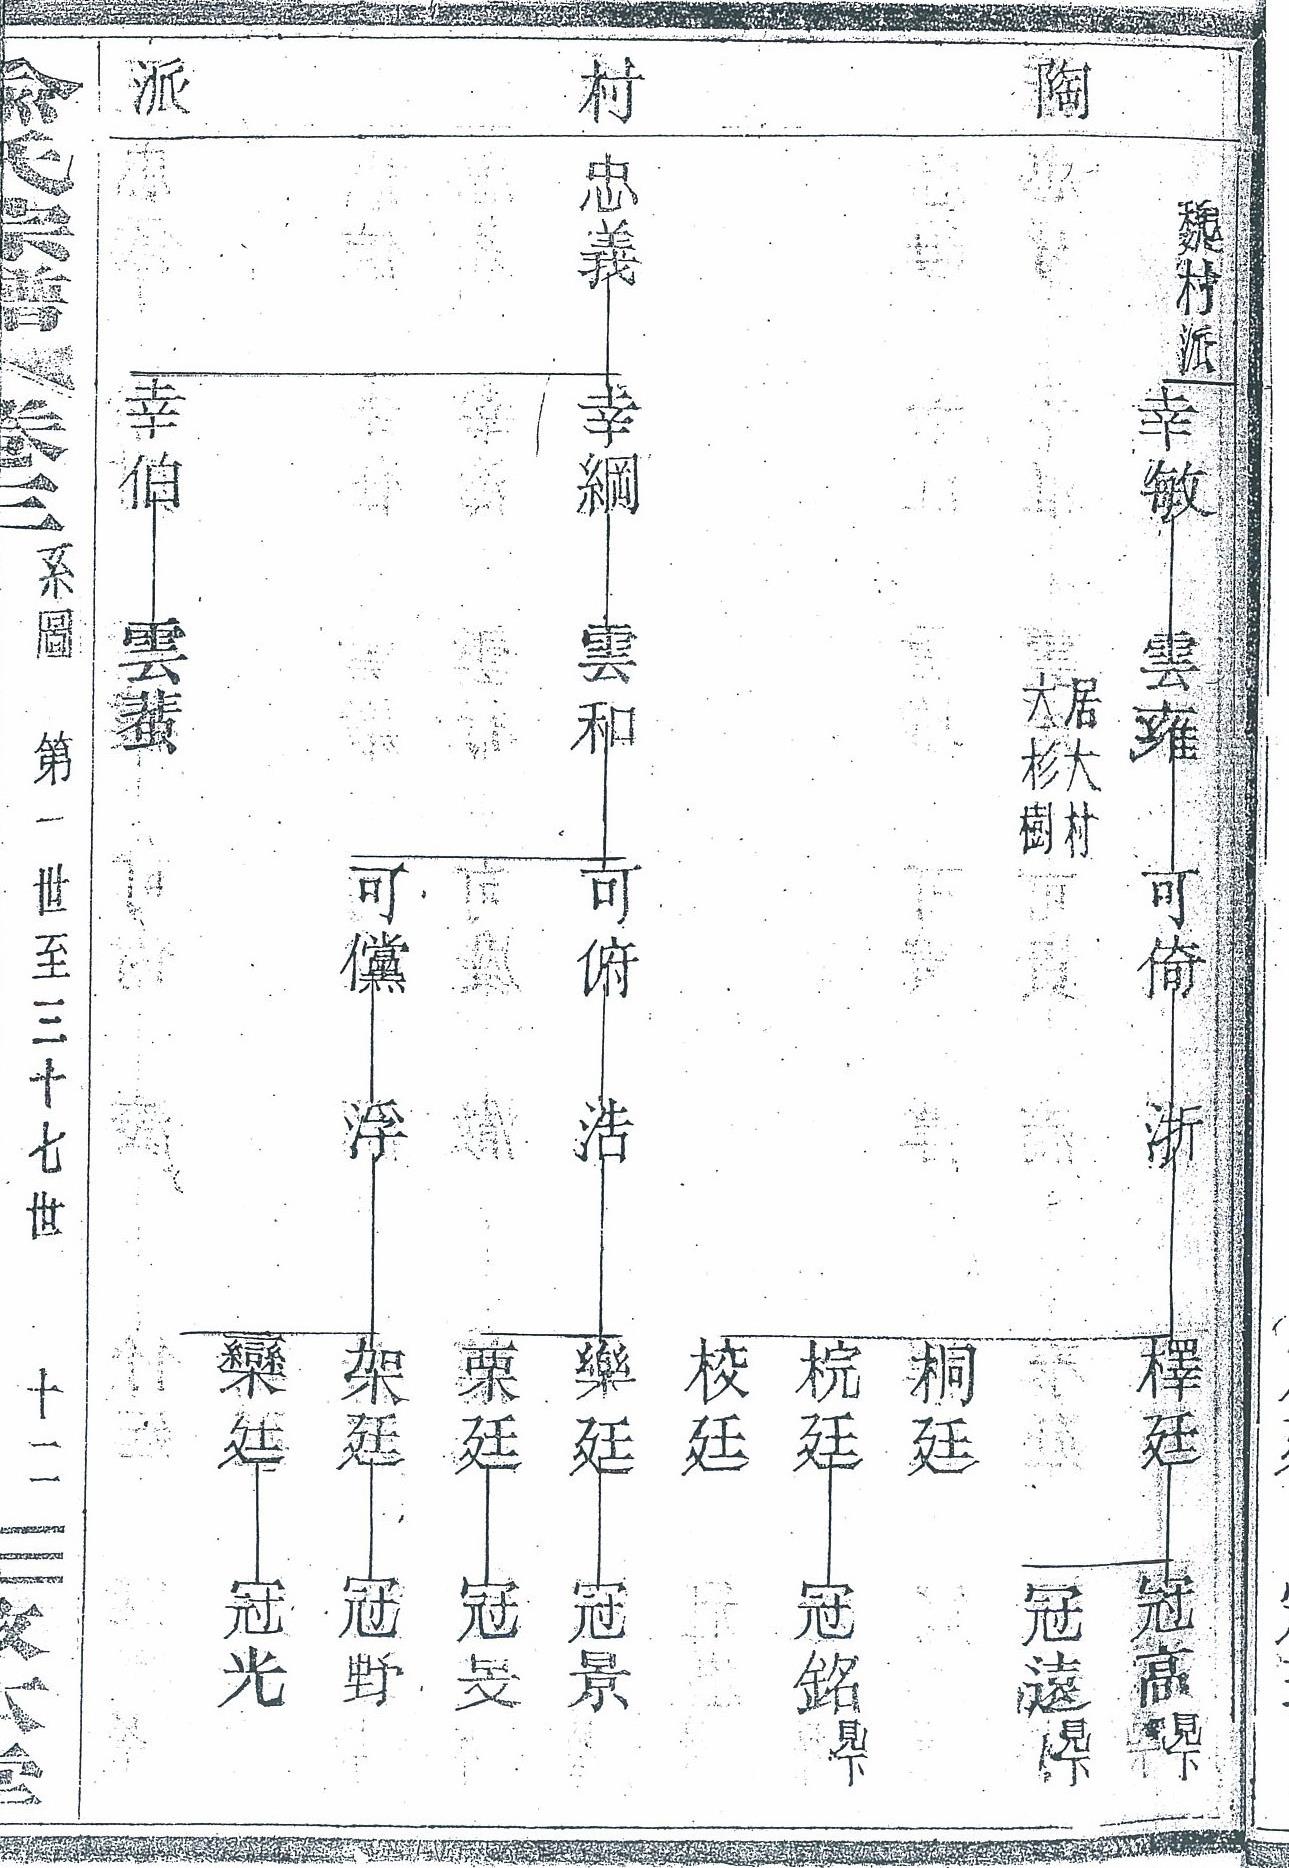 陶村派
魏村派
幸敏
雲雍
居大村
大杉樹
可倚
浙
檡廷
冠高 見下
冠遠 見下
桐廷
梡廷
冠銘 見下
校廷
忠義
幸綱
雲和
可俯
浩
樂廷
冠景
栗廷
冠旻
可儻
浮
架廷
冠野
欒廷
冠光
幸伯
雲蜚
俞氏宗譜 卷三
系圖
第一世至三十七世
十二